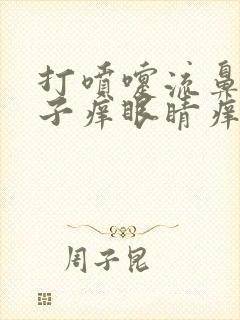 打喷嚏流鼻
子痒眼睛痒
周子昆